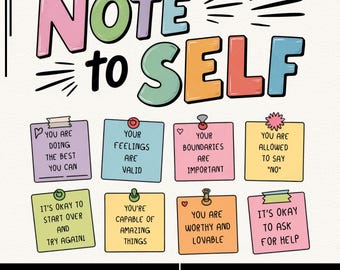 NOTE
to SELF
YOU ARE
DOING
THE BEST
YOU CAN
YOUR
FEELINGS
ARE
VALID
YOUR
BOUNDARIES
ARE
IMPORTANT
YOU ARE
ALLOWED
TO SAY
"NO"
IT'S OKAY TO
START OVER
AND
TRY AGAIN!
YOU'RE
CAPABLE OF
AMAZING
THINGS
YOU ARE
WORTHY AND
LOVABLE
IT'S OKAY
TO ASK
FOR HELP